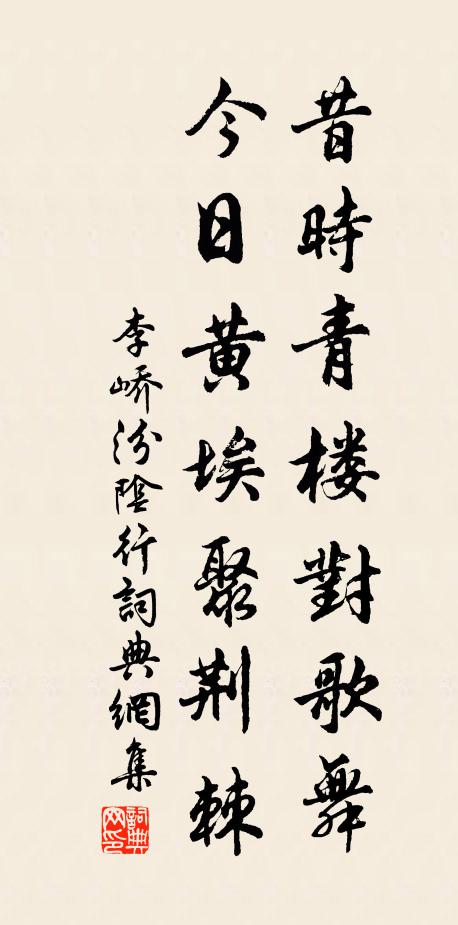 昔時青楼對歌舞
今日黄埃聚荆棘
李嶠汾陰行詞典網集
詞典網印